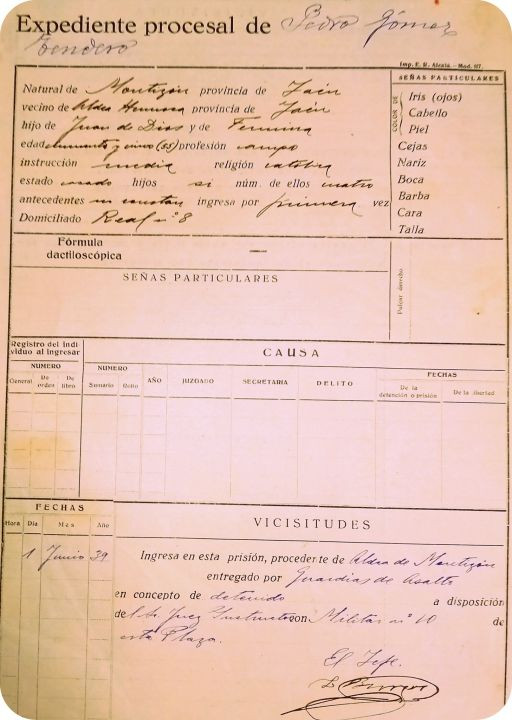 Expediente procesal de Pedro Gómez
Tendero
Imp. E. R. Alcalá.-Mod. 117.
Natural de Montizón provincia de Jaén
vecino de Aldea Hermosa provincia de Jaén
hijo de Juan de Dios y de Fermina
edad cincuenta y cinco (55) profesión campo
instrucción media religión católica
estado casado hijos si núm. de ellos cuatro
antecedentes no constan ingresa por primera vez
Domiciliado Real nº 8
SEÑAS PARTICULARES
COLOR DE
Iris (ojos)
Cabello
Piel
Cejas
Nariz
Boca
Barba
Cara
Talla
Fórmula
dactiloscópica —
SEÑAS PARTICULARES
Pulgar derecho
Registro del indi
viduo al ingresar
CAUSA
NUMERO
General De orden De libro
NUMERO
Sumario Rollo
AÑO JUZGADO SECRETARIA DELITO
FECHAS
De la detención o prisión De la libertad
FECHAS
Hora Día Mes Año
VICISITUDES
1 Junio 39
Ingresa en esta prisión, procedente de Aldea de Montizón
entregado por Guardias de Asalto
en concepto de detenido a disposición
del Sr. Juez Instructor con Militar nº 10 de
esta Plaza.
El Jefe.